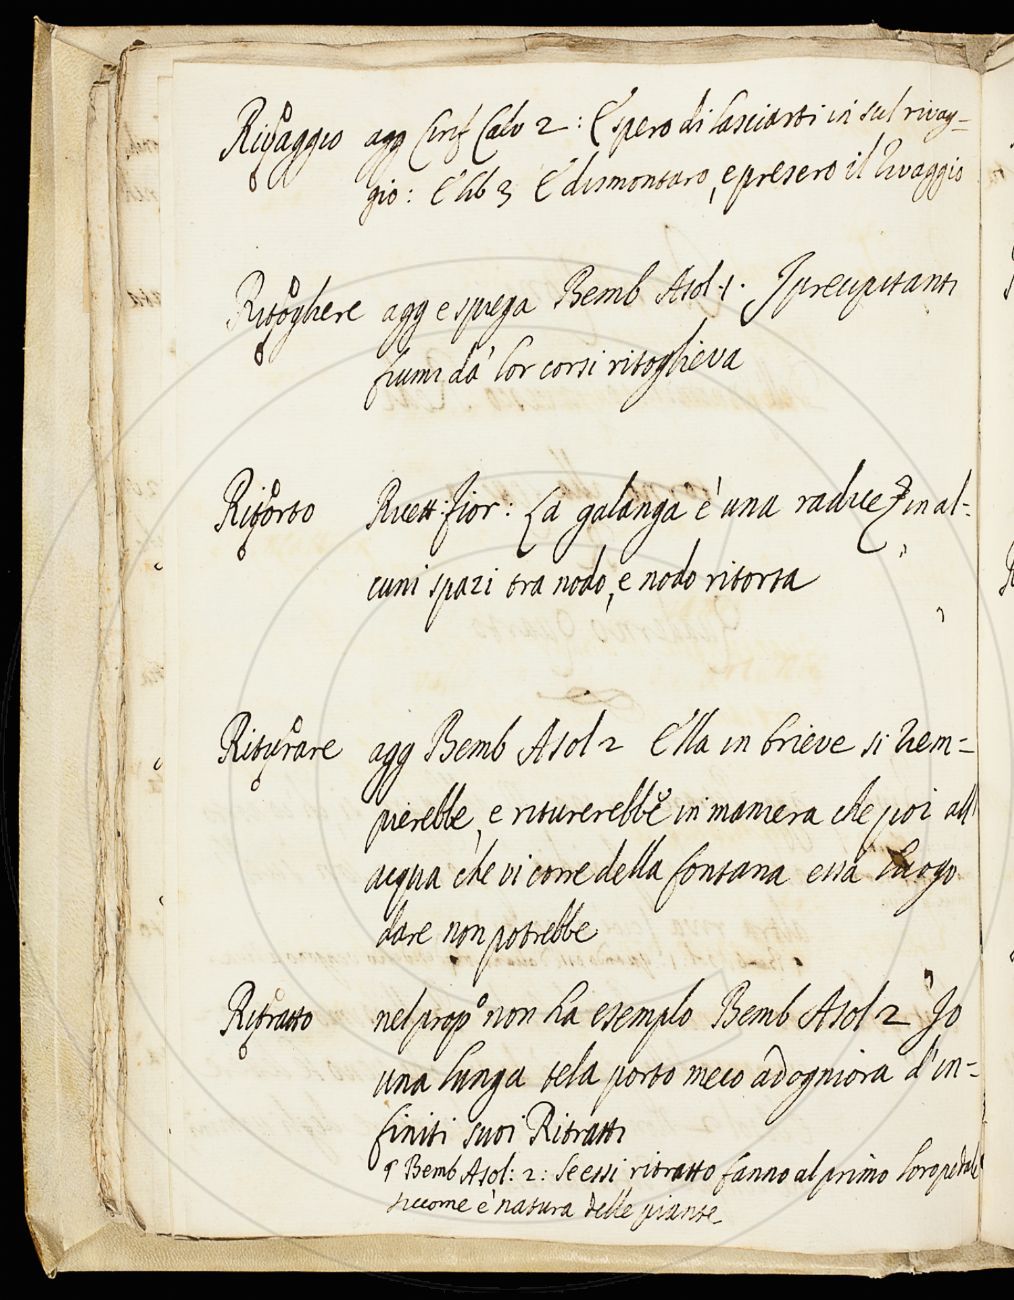 Rivaggio agg Cirif Calv 2: E spero di lasciarti in sul rivag=
gio: E lib 3 E dismontaro, e presero il rivaggio
Ritogliere agg e spiega Bemb Asol. 1. I precipitanti
fiumi da' lor corsi ritoglieva
Ritorto Ricett: Fior: La galanga è una radice in al=
cuni spazi tra nodo, e nodo ritorta
Riturare agg Bemb Asol 2 Ella in brieve si riem=
pierebbe, e riturerebbe in maniera che poi all'
acqua che vi corre della fontana essa luogo
dare non potrebbe
Ritratto nel propo non ha esemplo Bemb Asol 2 Io
una lunga tela porto meco ad ogniora d'in=
finiti suoi Ritratti
Bemb Asol: 2: Se essi ritratto fanno al primo loro pedale
siccome è natura delle piante